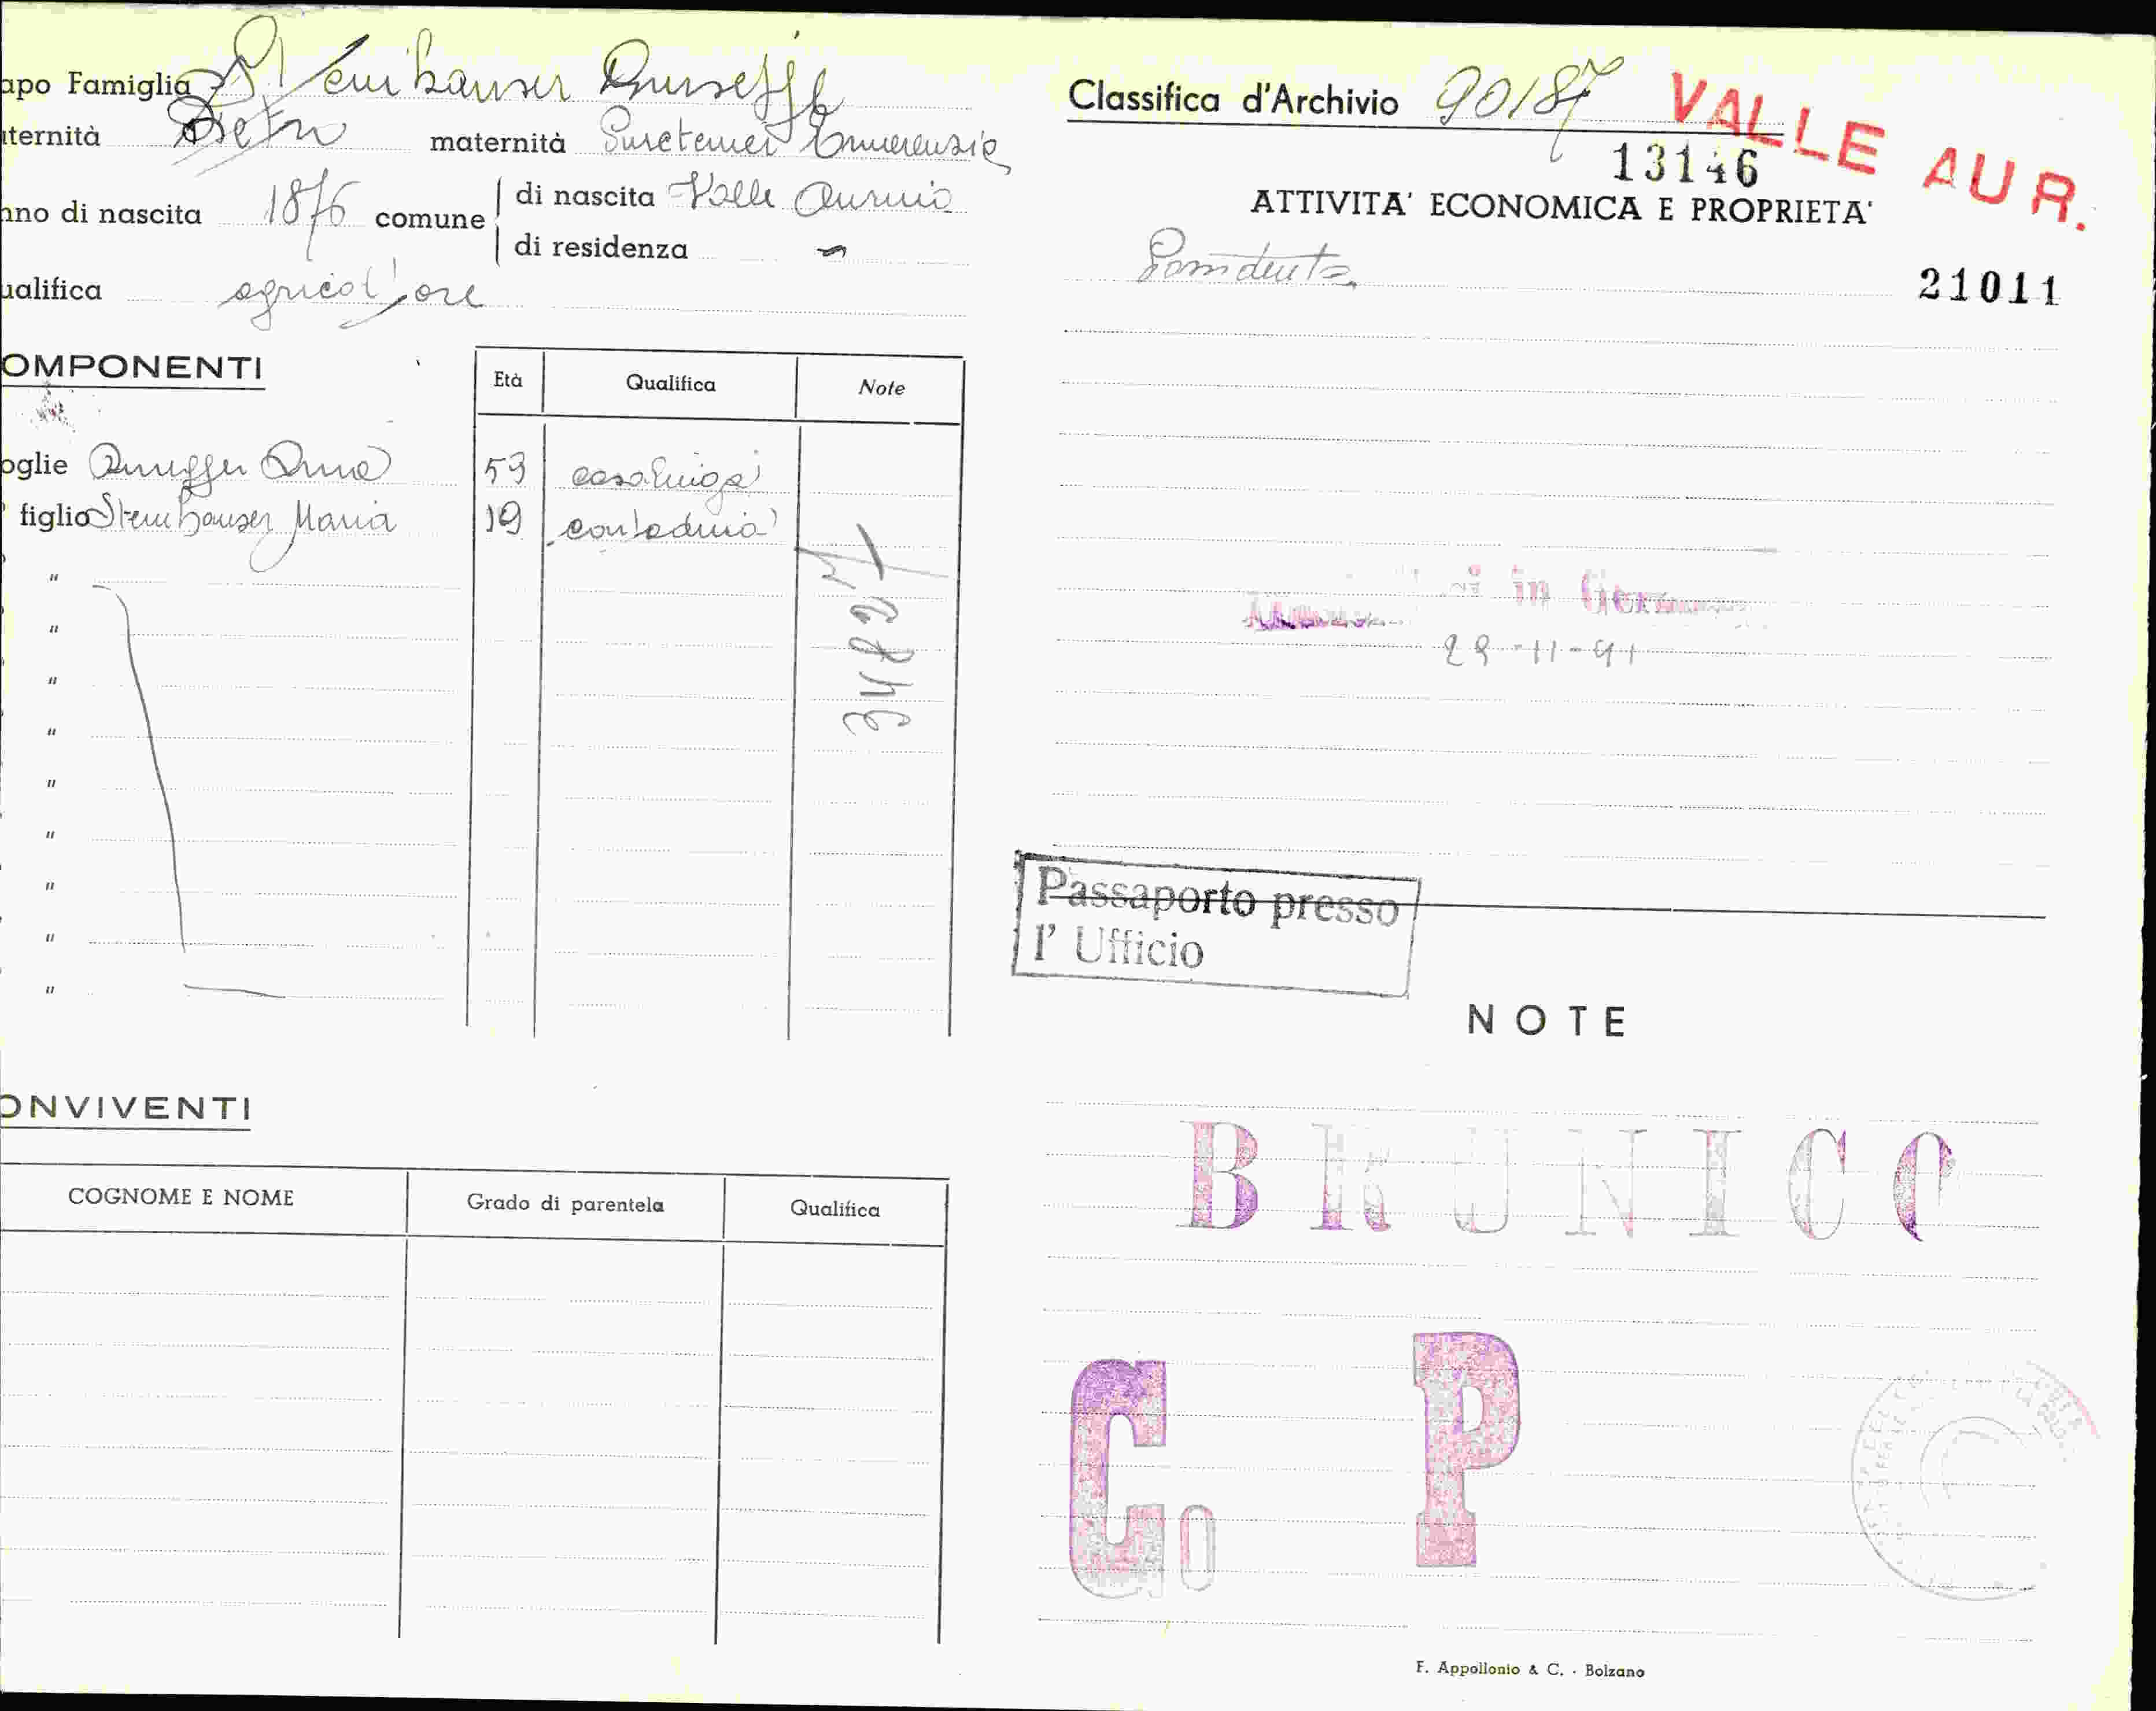 apo Famiglia Steinhauser Giuseppe
ternità Pietro maternità
nno di nascita 1876 comune di nascita Valle Aurina
di residenza "
ualifica agricoltore
OMPONENTI
Età Qualifica Note
oglie Anna 53 casalinga
figlio Steinhauser Maria 19 contadina
"
"
"
"
"
"
"
"
"
ONVIVENTI
COGNOME E NOME Grado di parentela Qualifica
Classifica d'Archivio 90187
VALLE AUR.
13146
ATTIVITA' ECONOMICA E PROPRIETA'
21011
in
Passaporto presso
l' Ufficio
NOTE
BRUNICO
C. P
F. Appollonio & C. - Bolzano